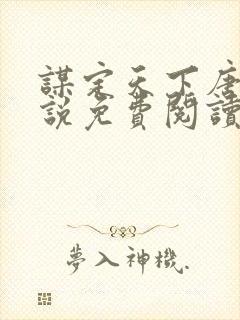 謀定天下唐
說免費閱讀
夢入神機.